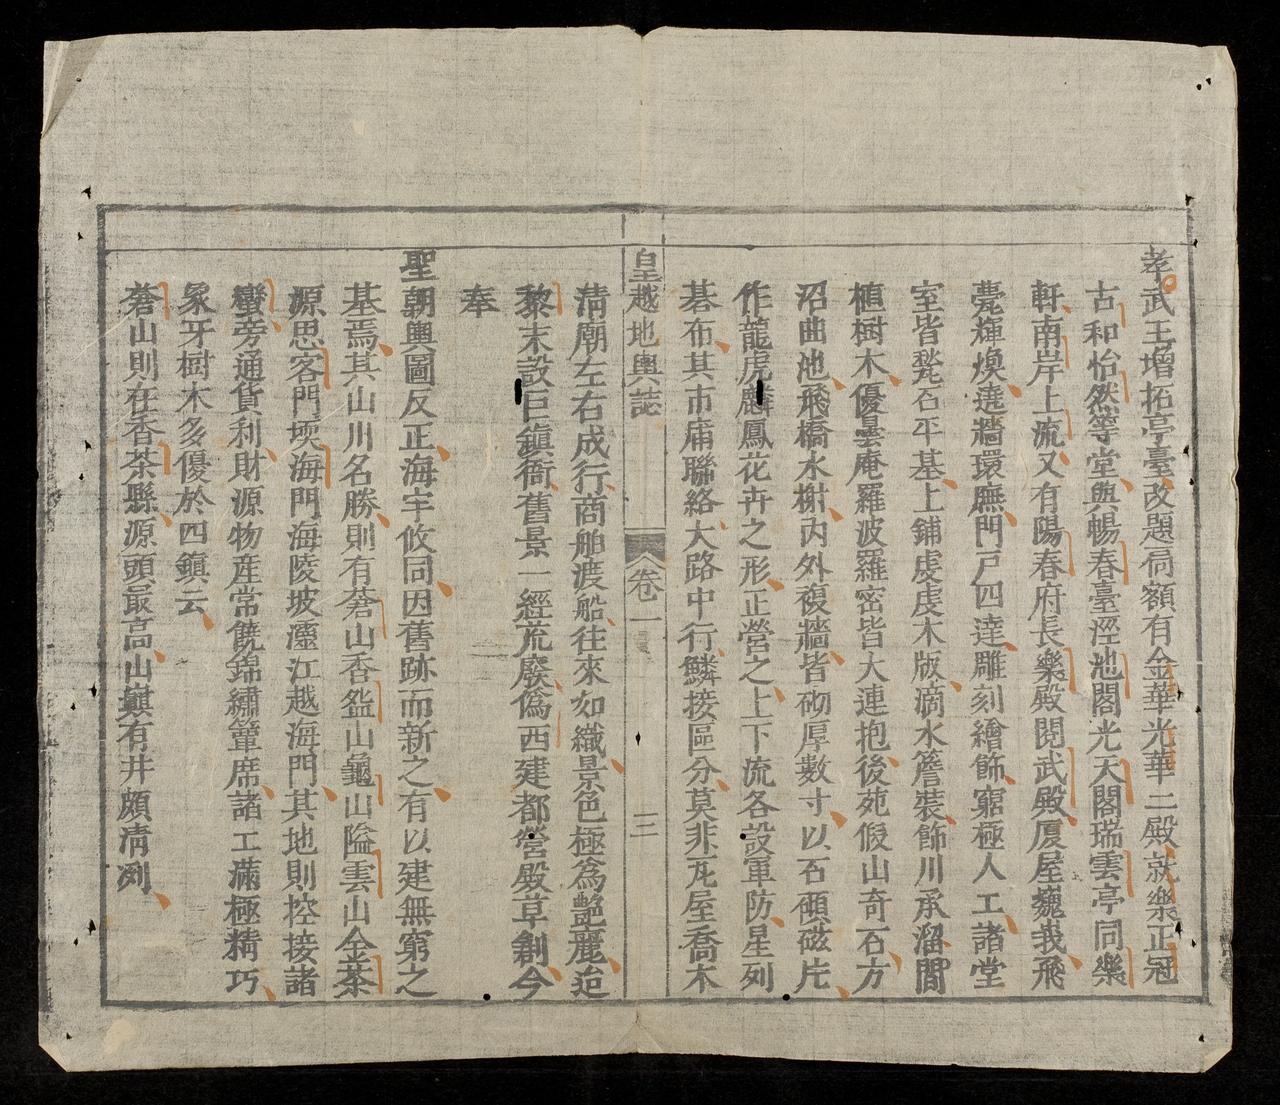 孝武王增拓亭臺改題扁額有金華光華二殿就樂正冠
古和怡然等堂與暢春臺涇池閣光天閣瑞雲亭同樂
軒南岸上流又有陽春府長樂殿閱武殿厦屋巍峩飛
甍輝煥遶牆環廡門戸四達雕刻繪飾窮極人工諸堂
室皆甃石平基上鋪虔虔木版滴水簷裝飾川承溜間
植樹木優曇庵羅波羅密皆大連抱後苑假山奇石方
沼曲池飛橋水榭內外複牆皆砌厚數寸以石磧磁片
作龍虎麟鳳花卉之形正營之上下流各設軍防星列
碁布其市庸聯絡大路中行鱗接區分莫非瓦屋喬木
皇越地輿誌 卷一 三
清廟左右成行商舶渡船往來如織景色極爲艶麗迨
黎末設巨鎮衙舊景一經荒廢僞西建都營殿草創今
奉
聖朝輿圖反正海宇攸同因舊跡而新之有以建無窮之
基焉其山川名勝則有蒼山香盆山龜山隘雲山金茶
源思客門㙇海門海陵坡灋江越海門其地則控接諸
蠻旁通貨利財源物産常饒錦繡簟席諸工滿極精巧
象牙樹木多優於四鎮云
蒼山則在香茶縣源頭最高山巔有井頗淸冽